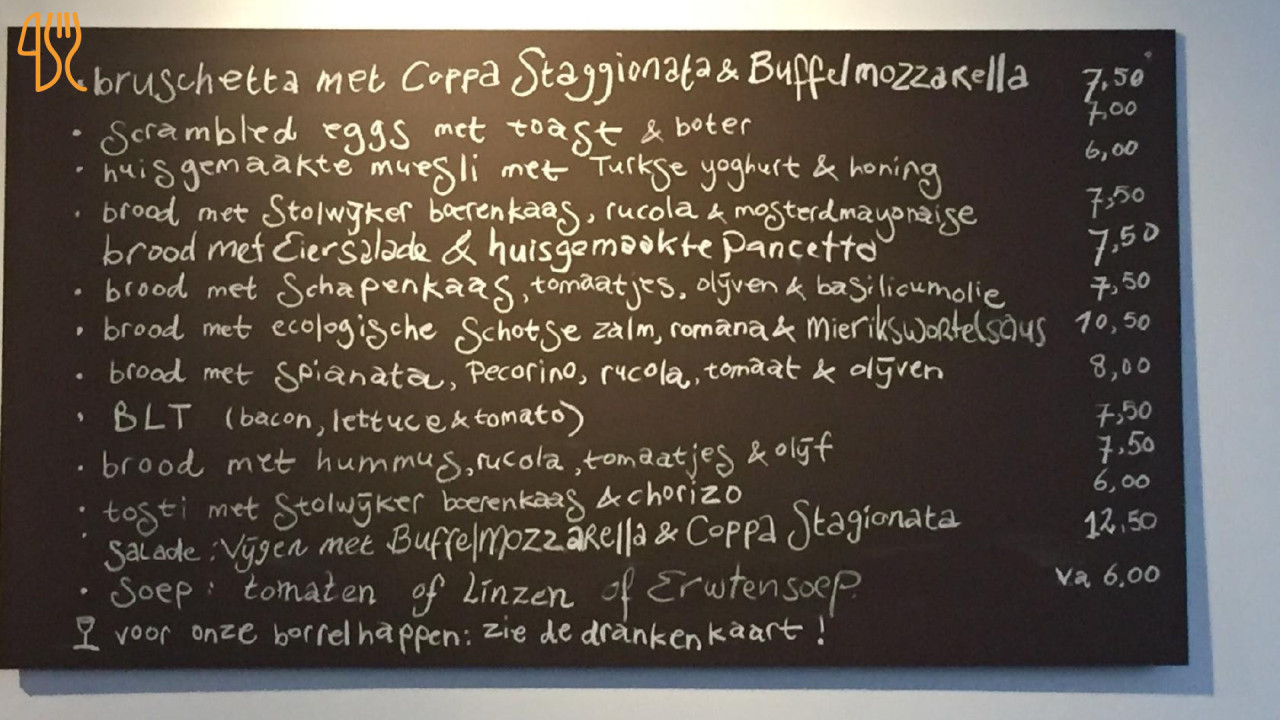 • bruschetta met Coppa Staggionata & Buffelmozzarella 7,50
• Scrambled eggs met toast & boter 7,00
• huisgemaakte muesli met Turkse yoghurt & honing 6,00
• brood met Stolwijker boerenkaas, rucola & mosterdmayonaise 7,50
brood met Eiersalade & huisgemaakte Pancetta 7,50
• brood met Schapenkaas, tomaatjes, olijven & basilicumolie 7,50
• brood met ecologische Schotse zalm, romana & Mierikswortelsaus 10,50
• brood met Spianata, Pecorino, rucola, tomaat & olijven 8,00
• BLT (bacon, lettuce & tomato) 7,50
• brood met hummus, rucola, tomaatjes & olijf 7,50
• tosti met Stolwijker boerenkaas & chorizo 6,00
• Salade: Vijgen met Buffelmozzarella & Coppa Stagionata 12,50
• Soep: tomaten of Linzen of Erwtensoep va 6.00
voor onze borrelhappen: zie de drankenkaart!